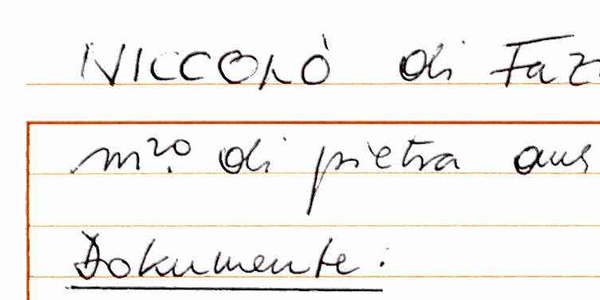 NICCOLÒ di Faz
m.ro di pietra aus
Dokumente: